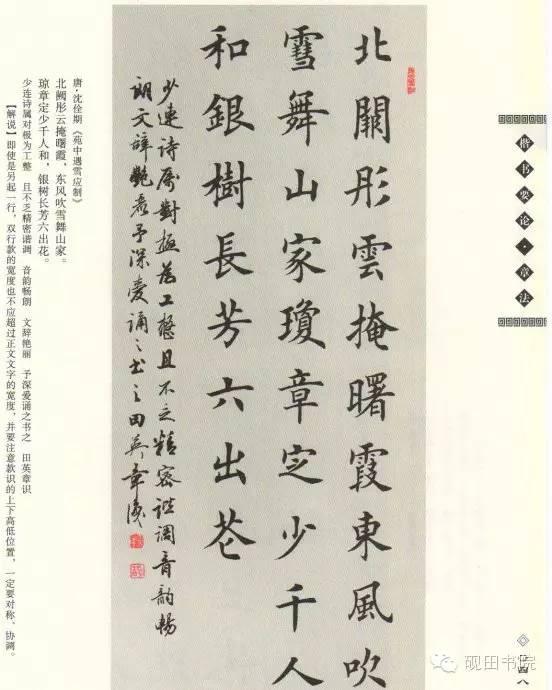 楷书要论·章法
北闕彤雲掩曙霞東風吹
雪舞山家瓊章定少千人
和銀樹長芳六出花
少連詩屬對極為工整且不乏精密諧調音韵暢
朗文辭艷麗予深愛誦之书之田英章識
唐·沈佺期《苑中遇雪应制》
北阙彤云掩曙霞，东风吹雪舞山家。
琼章定少千人和，银树长芳六出花。
少连诗属对极为工整 且不乏精密谐调 音韵畅朗 文辞艳丽 予深爱诵之书之 田英章识
【解说】即使是另起一行，双行款的宽度也不应超过正文文字的宽度，并要注意款识的上下高低位置，一定要对称、协调。
四八
砚田书院